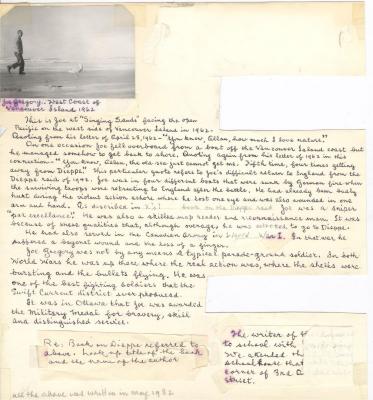 Joe Gregory. West Coast of
Vancouver Island 1962
This is Joe at "Singing Sands" facing the open
Pacific on the west side of Vancouver Island in 1962.
Quoting from his letter of April 28, 1962 - "You know, Ellen, how much I love nature."
On one occasion Joe fell overboard from a boat off the Vancouver Island coast but
he managed somehow to get back to shore. Quoting again from his letter of 1962 in this
connection - "You know, Ellen, the old sea just cannot get me. Fifth time, four times getting
away from Dieppe." This particular quote refers to Joe's difficult return to England from the
Dieppe Raid of 1942. Joe was in four different boats that were sunk by German fire when
the surviving troops were retreating to England after the battle. He had already been badly
hurt during the violent action ashore where he lost one eye and was also wounded in one
arm and hand. Joe was a sniper
"par excellence." He was also a skilled map reader and reconnaissance man. It was
because of these qualities that, although overage, he was selected to go to Dieppe.
He had also served in the Canadian Army in World War I. In that war he
suffered a bayonet wound and the loss of a finger.
Joe Gregory was not by any means a typical parade-ground soldier. In both
World Wars he was up there where the real action was, where the shells were
bursting and the bullets flying. He was
one of the best fighting soldiers that the
Swift Current district ever produced.
It was in Ottawa that Joe was awarded
the Military Medal for bravery, skill
and distinguished service.
Re: Book on Dieppe referred to
above. Look up title of the book
and the name of the author
The writer of t
to school with
We attended th
school house that
corner of 3rd
Street.
all the above was written in May 1982